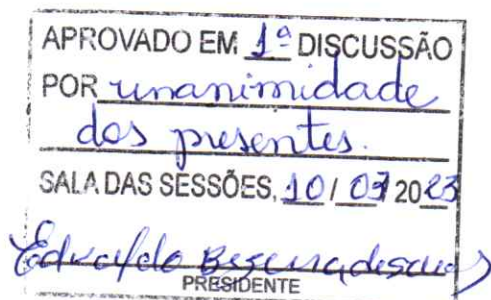 APROVADO EM 1ª DISCUSSÃO
POR unanimidade
dos presentes.
SALA DAS SESSÕES, 10 / 03 2023
Edvaldo Bezerra
PRESIDENTE